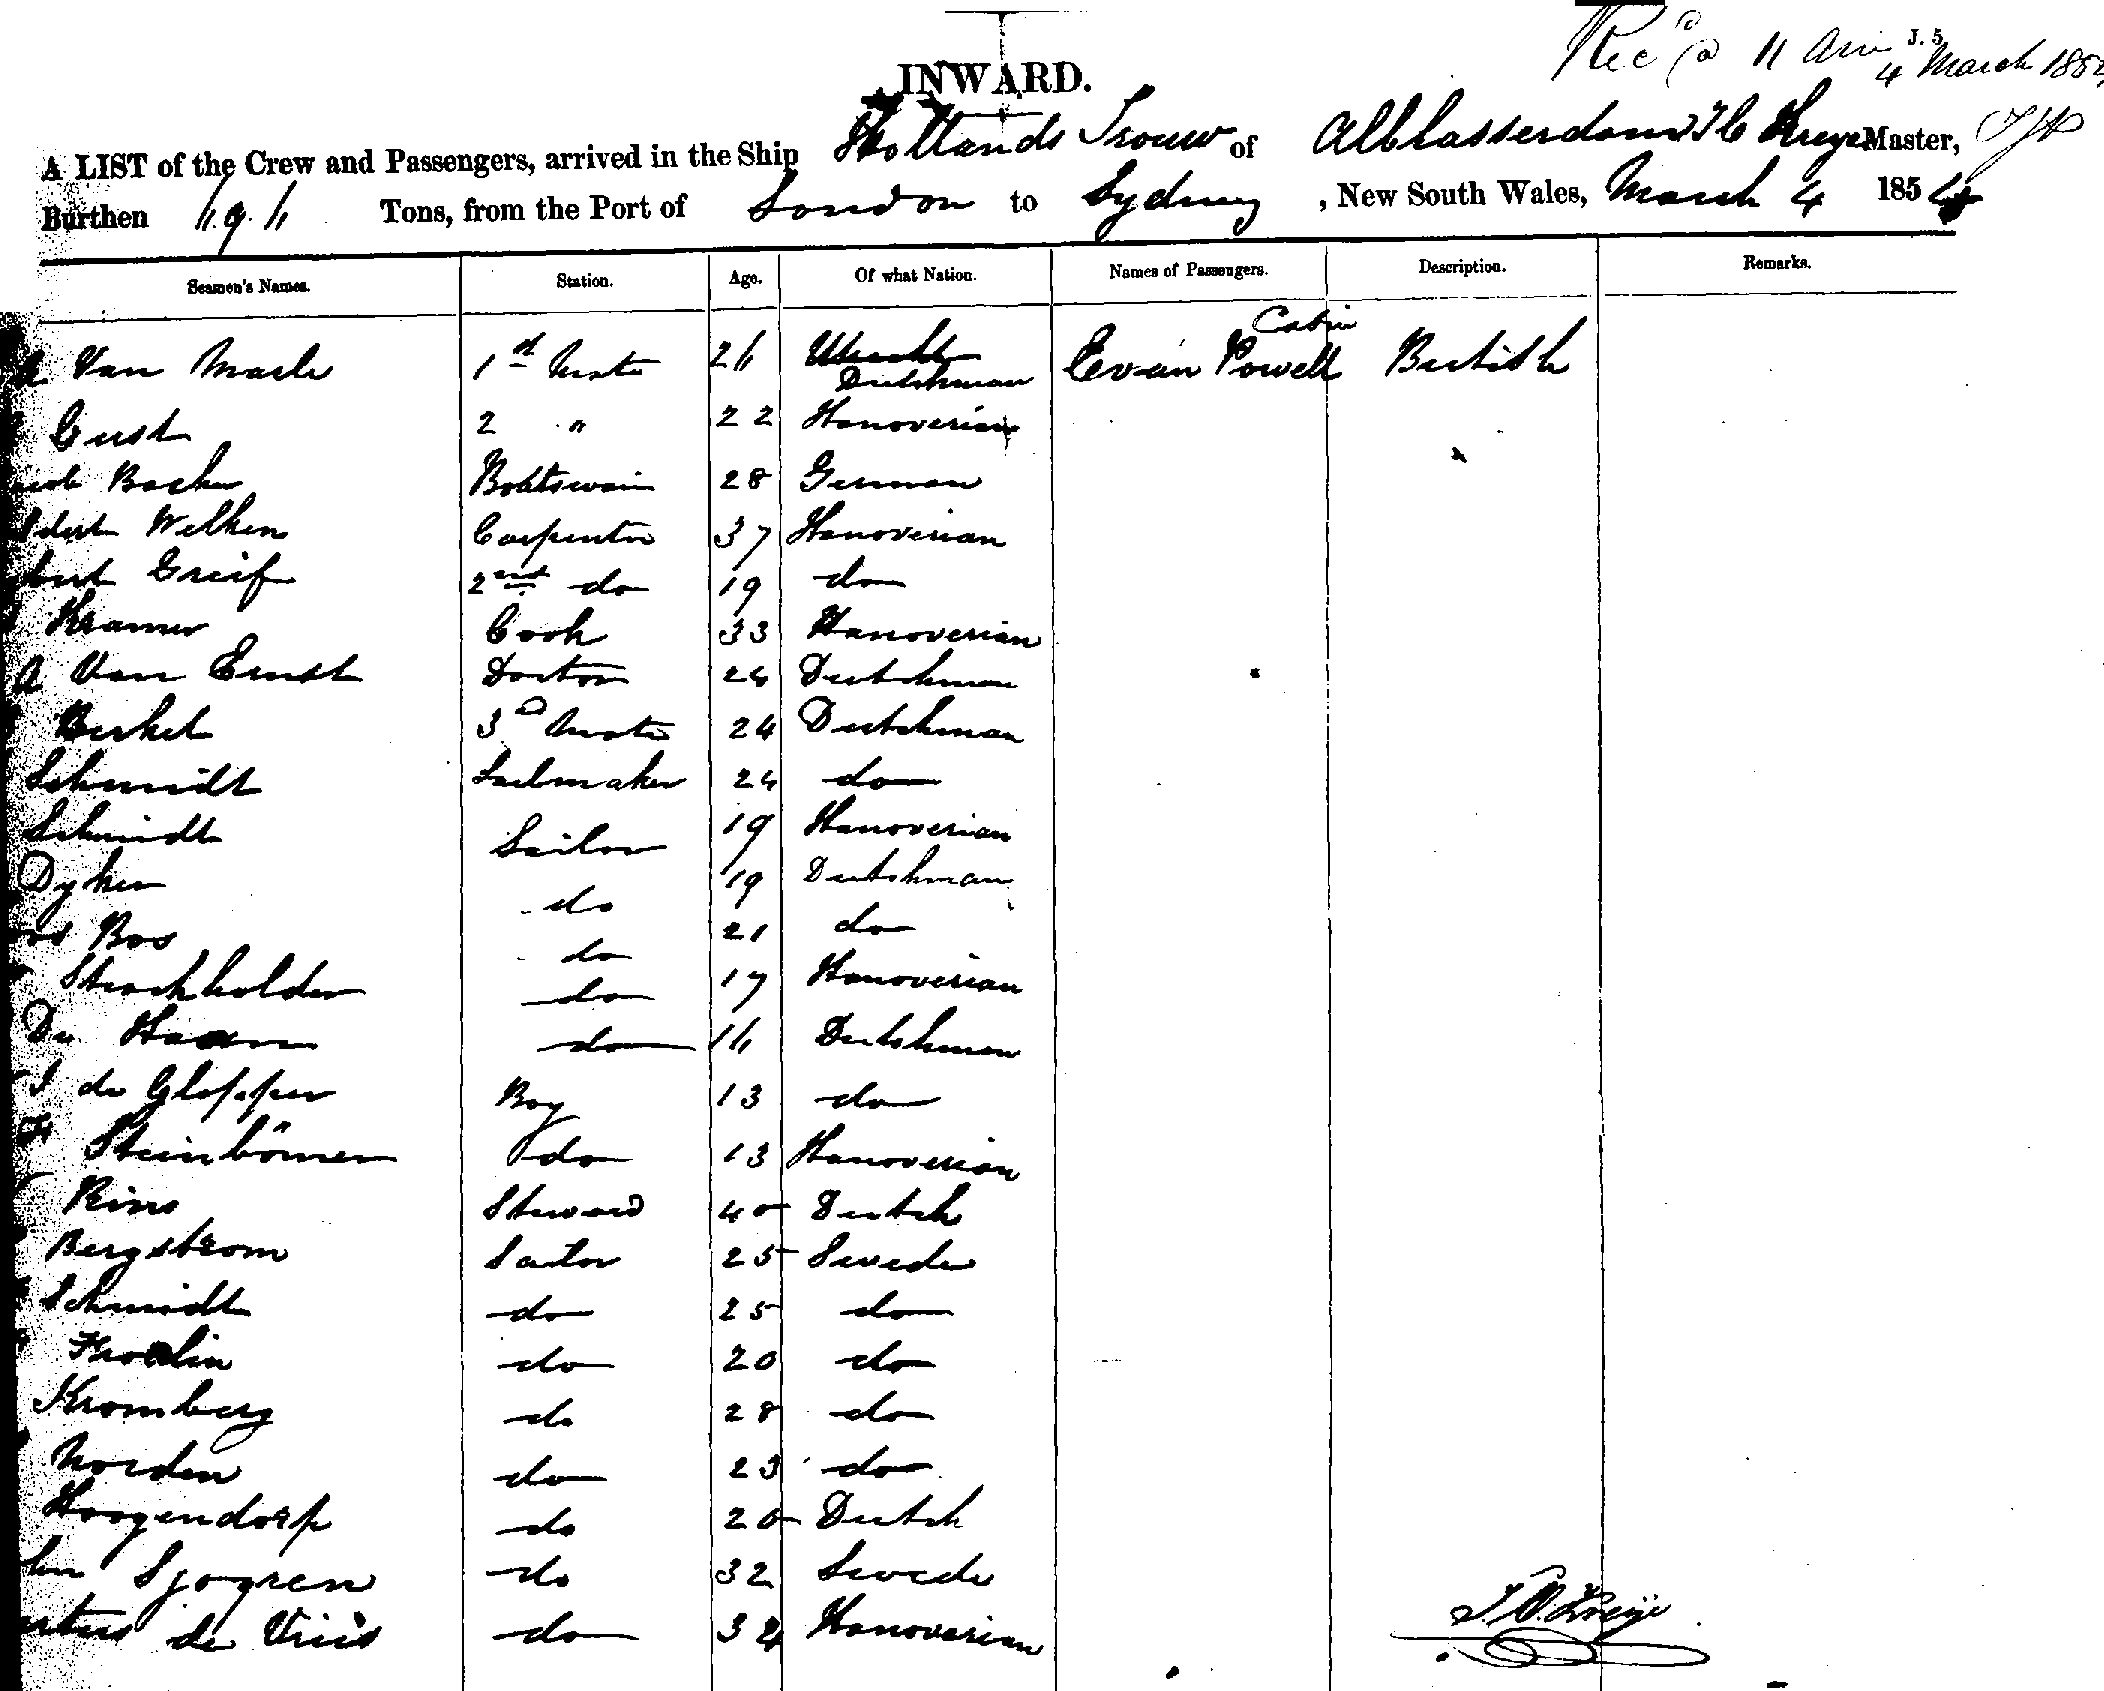 J. 5
Rec'd 11 am 4 March 185
INWARD.
A LIST of the Crew and Passengers, arrived in the Ship Hollands Trouw of Alblasserdam Kreije Master,
Burthen 696 Tons, from the Port of London to Sydney, New South Wales, March 4 1854
Seamen's Names. Station. Age. Of what Nation. Names of Passengers. Description. Remarks.
Cabin
A Van Marle 1st Mate 26 Dutchman Evan Powell British
Cust 2 " 22 Hanoverian
Backer Boatswain 28 German
Welken Carpenter 37 Hanoverian
Greif 2nd do 19 do
Kramer Cook 33 Hanoverian
A Van Ernst Doctor 24 Dutchman
Berkel 3d Mate 24 Dutchman
Schmidt Sailmaker 24 do
Schmidt Sailor 19 Hanoverian
Dyker do 19 Dutchman
Bos do 21 do
Strackholder do 17 Hanoverian
De Haan do 16 Dutchman
J de Glopper Boy 13 do
Steinbömer do 13 Hanoverian
Rins Steward 40 Dutch
Bergstrom Sailor 25 Swede
Schmidt do 25 do
do 20 do
Kromberg do 28 do
Norden do 23 do
Hoogendorp do 20 Dutch
Sjogren do 32 Swede
de Vries do 34 Hanoverian
Kreije